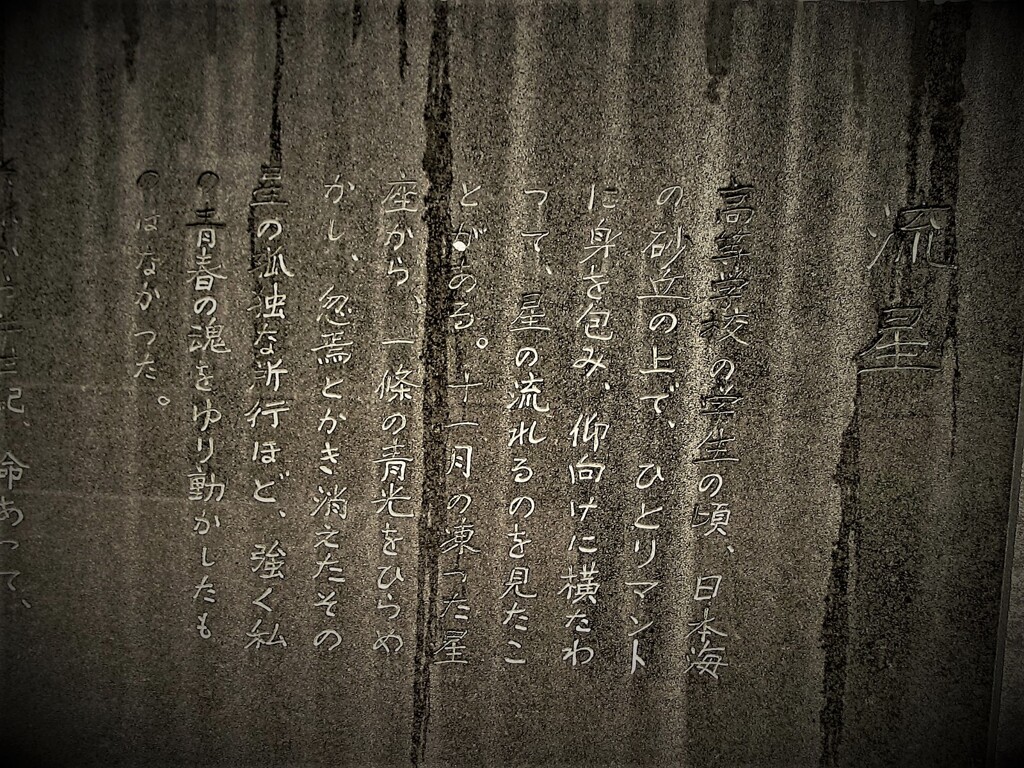 流星
高等学校の学生の頃、日本海
の砂丘の上で、ひとりマント
に身を包み、仰向けに横たわ
って、星の流れるのを見たこ
とがある。十一月の凍った星
座から、一條の青光をひらめ
かし、忽焉とかき消えたその
星の孤独な所行ほど、強く私
の青春の魂をゆり動かしたも
のはなかった。
世紀、命あって、